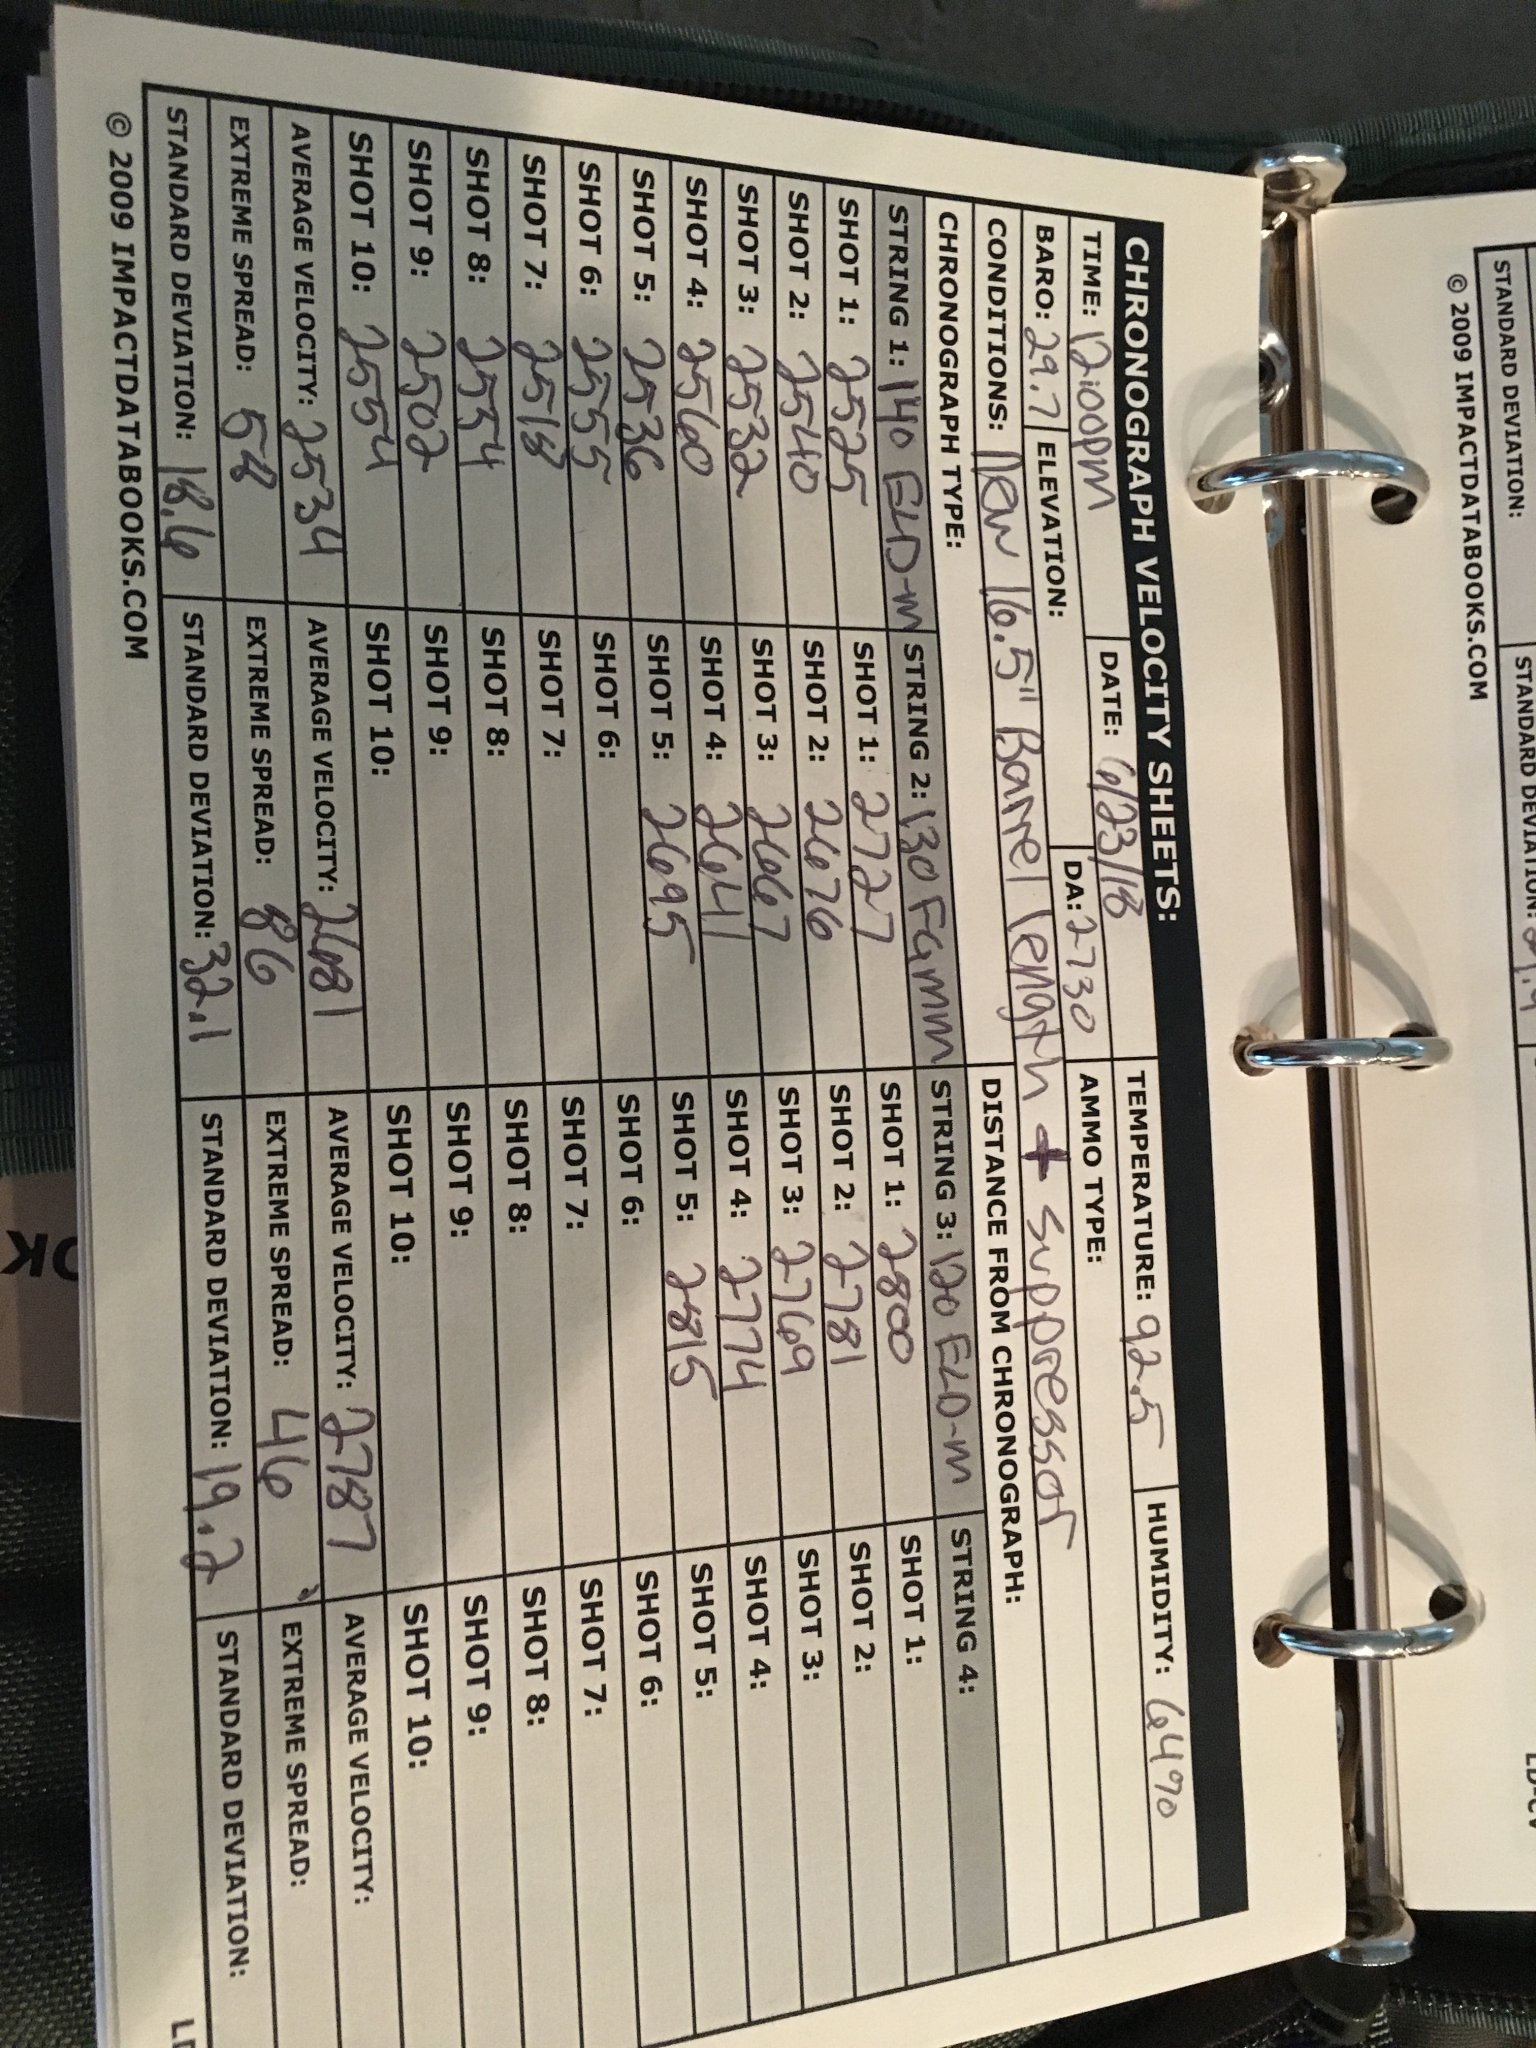 CHRONOGRAPH VELOCITY SHEETS:
TIME: 12:00pm DATE: 6/23/18 TEMPERATURE: 92.5 HUMIDITY: 64%
BARO: 29.7 ELEVATION: DA: 2730 AMMO TYPE:
CONDITIONS: New 16.5" Barrel length + suppressor
CHRONOGRAPH TYPE: DISTANCE FROM CHRONOGRAPH:
STRING 1: 140 ELD-m STRING 2: 130 FGmm STRING 3: 120 ELD-m STRING 4:
SHOT 1: 2525 SHOT 1: 2727 SHOT 1: 2800 SHOT 1:
SHOT 2: 2540 SHOT 2: 2676 SHOT 2: 2781 SHOT 2:
SHOT 3: 2532 SHOT 3: 2667 SHOT 3: 2769 SHOT 3:
SHOT 4: 2560 SHOT 4: 2641 SHOT 4: 2774 SHOT 4:
SHOT 5: 2536 SHOT 5: 2695 SHOT 5: 2815 SHOT 5:
SHOT 6: 2555 SHOT 6: SHOT 6: SHOT 6:
SHOT 7: 2518 SHOT 7: SHOT 7: SHOT 7:
SHOT 8: 2534 SHOT 8: SHOT 8: SHOT 8:
SHOT 9: 2502 SHOT 9: SHOT 9: SHOT 9:
SHOT 10: 2554 SHOT 10: SHOT 10: SHOT 10:
AVERAGE VELOCITY: 2534 AVERAGE VELOCITY: 2681 AVERAGE VELOCITY: 2787 AVERAGE VELOCITY:
EXTREME SPREAD: 58 EXTREME SPREAD: 86 EXTREME SPREAD: 46 EXTREME SPREAD:
STANDARD DEVIATION: 18.6 STANDARD DEVIATION: 32.1 STANDARD DEVIATION: 19.2 STANDARD DEVIATION:
© 2009 IMPACTDATABOOKS.COM
STANDARD DEVIATION: STANDARD DEVIATION:
© 2009 IMPACTDATABOOKS.COM